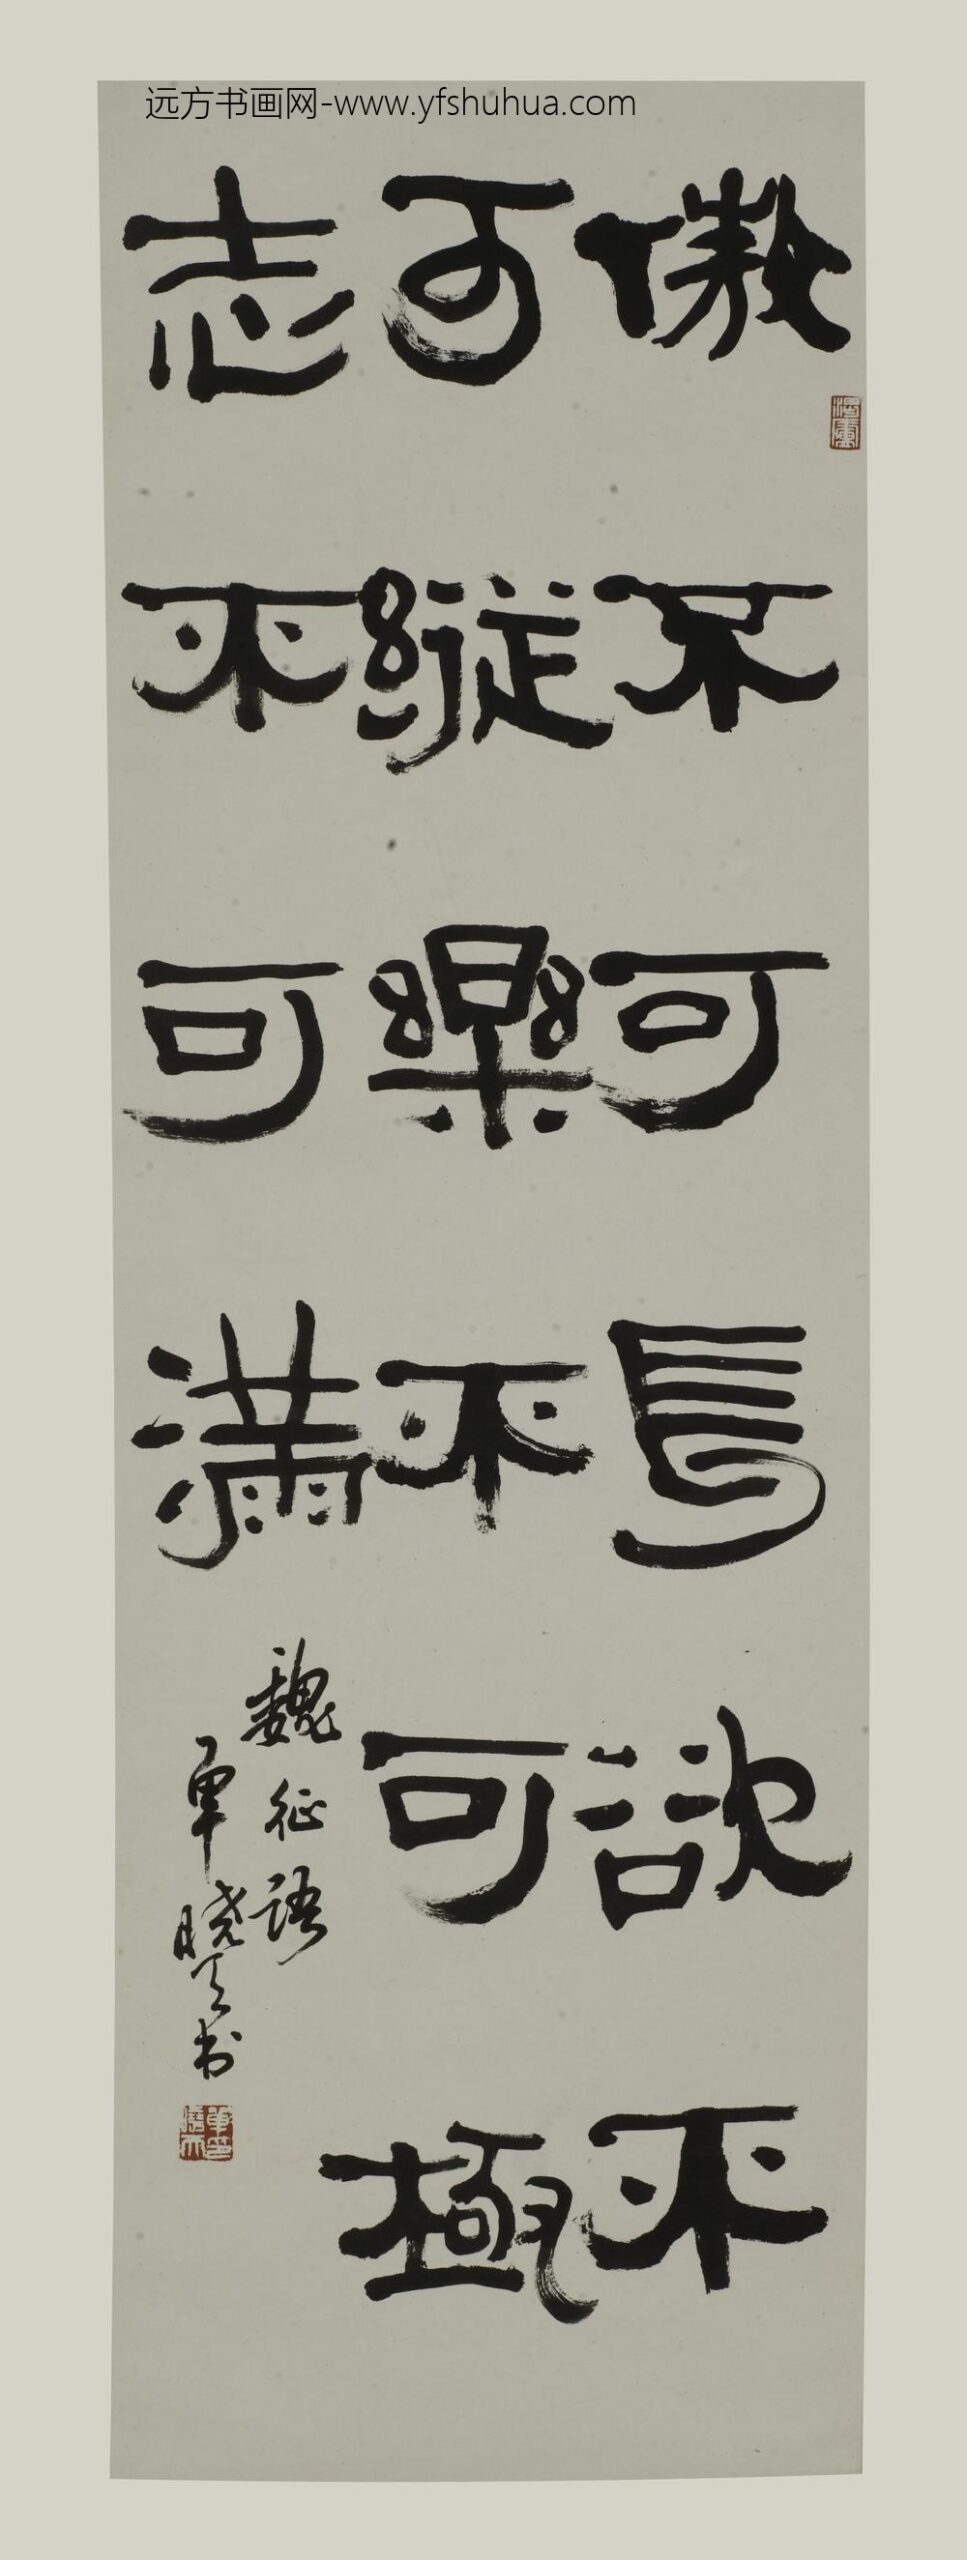 远方书画网-www.yfshuhua.com
傲不可長欲不
可縱樂不可極
志不可满
魏征语
单晓天书